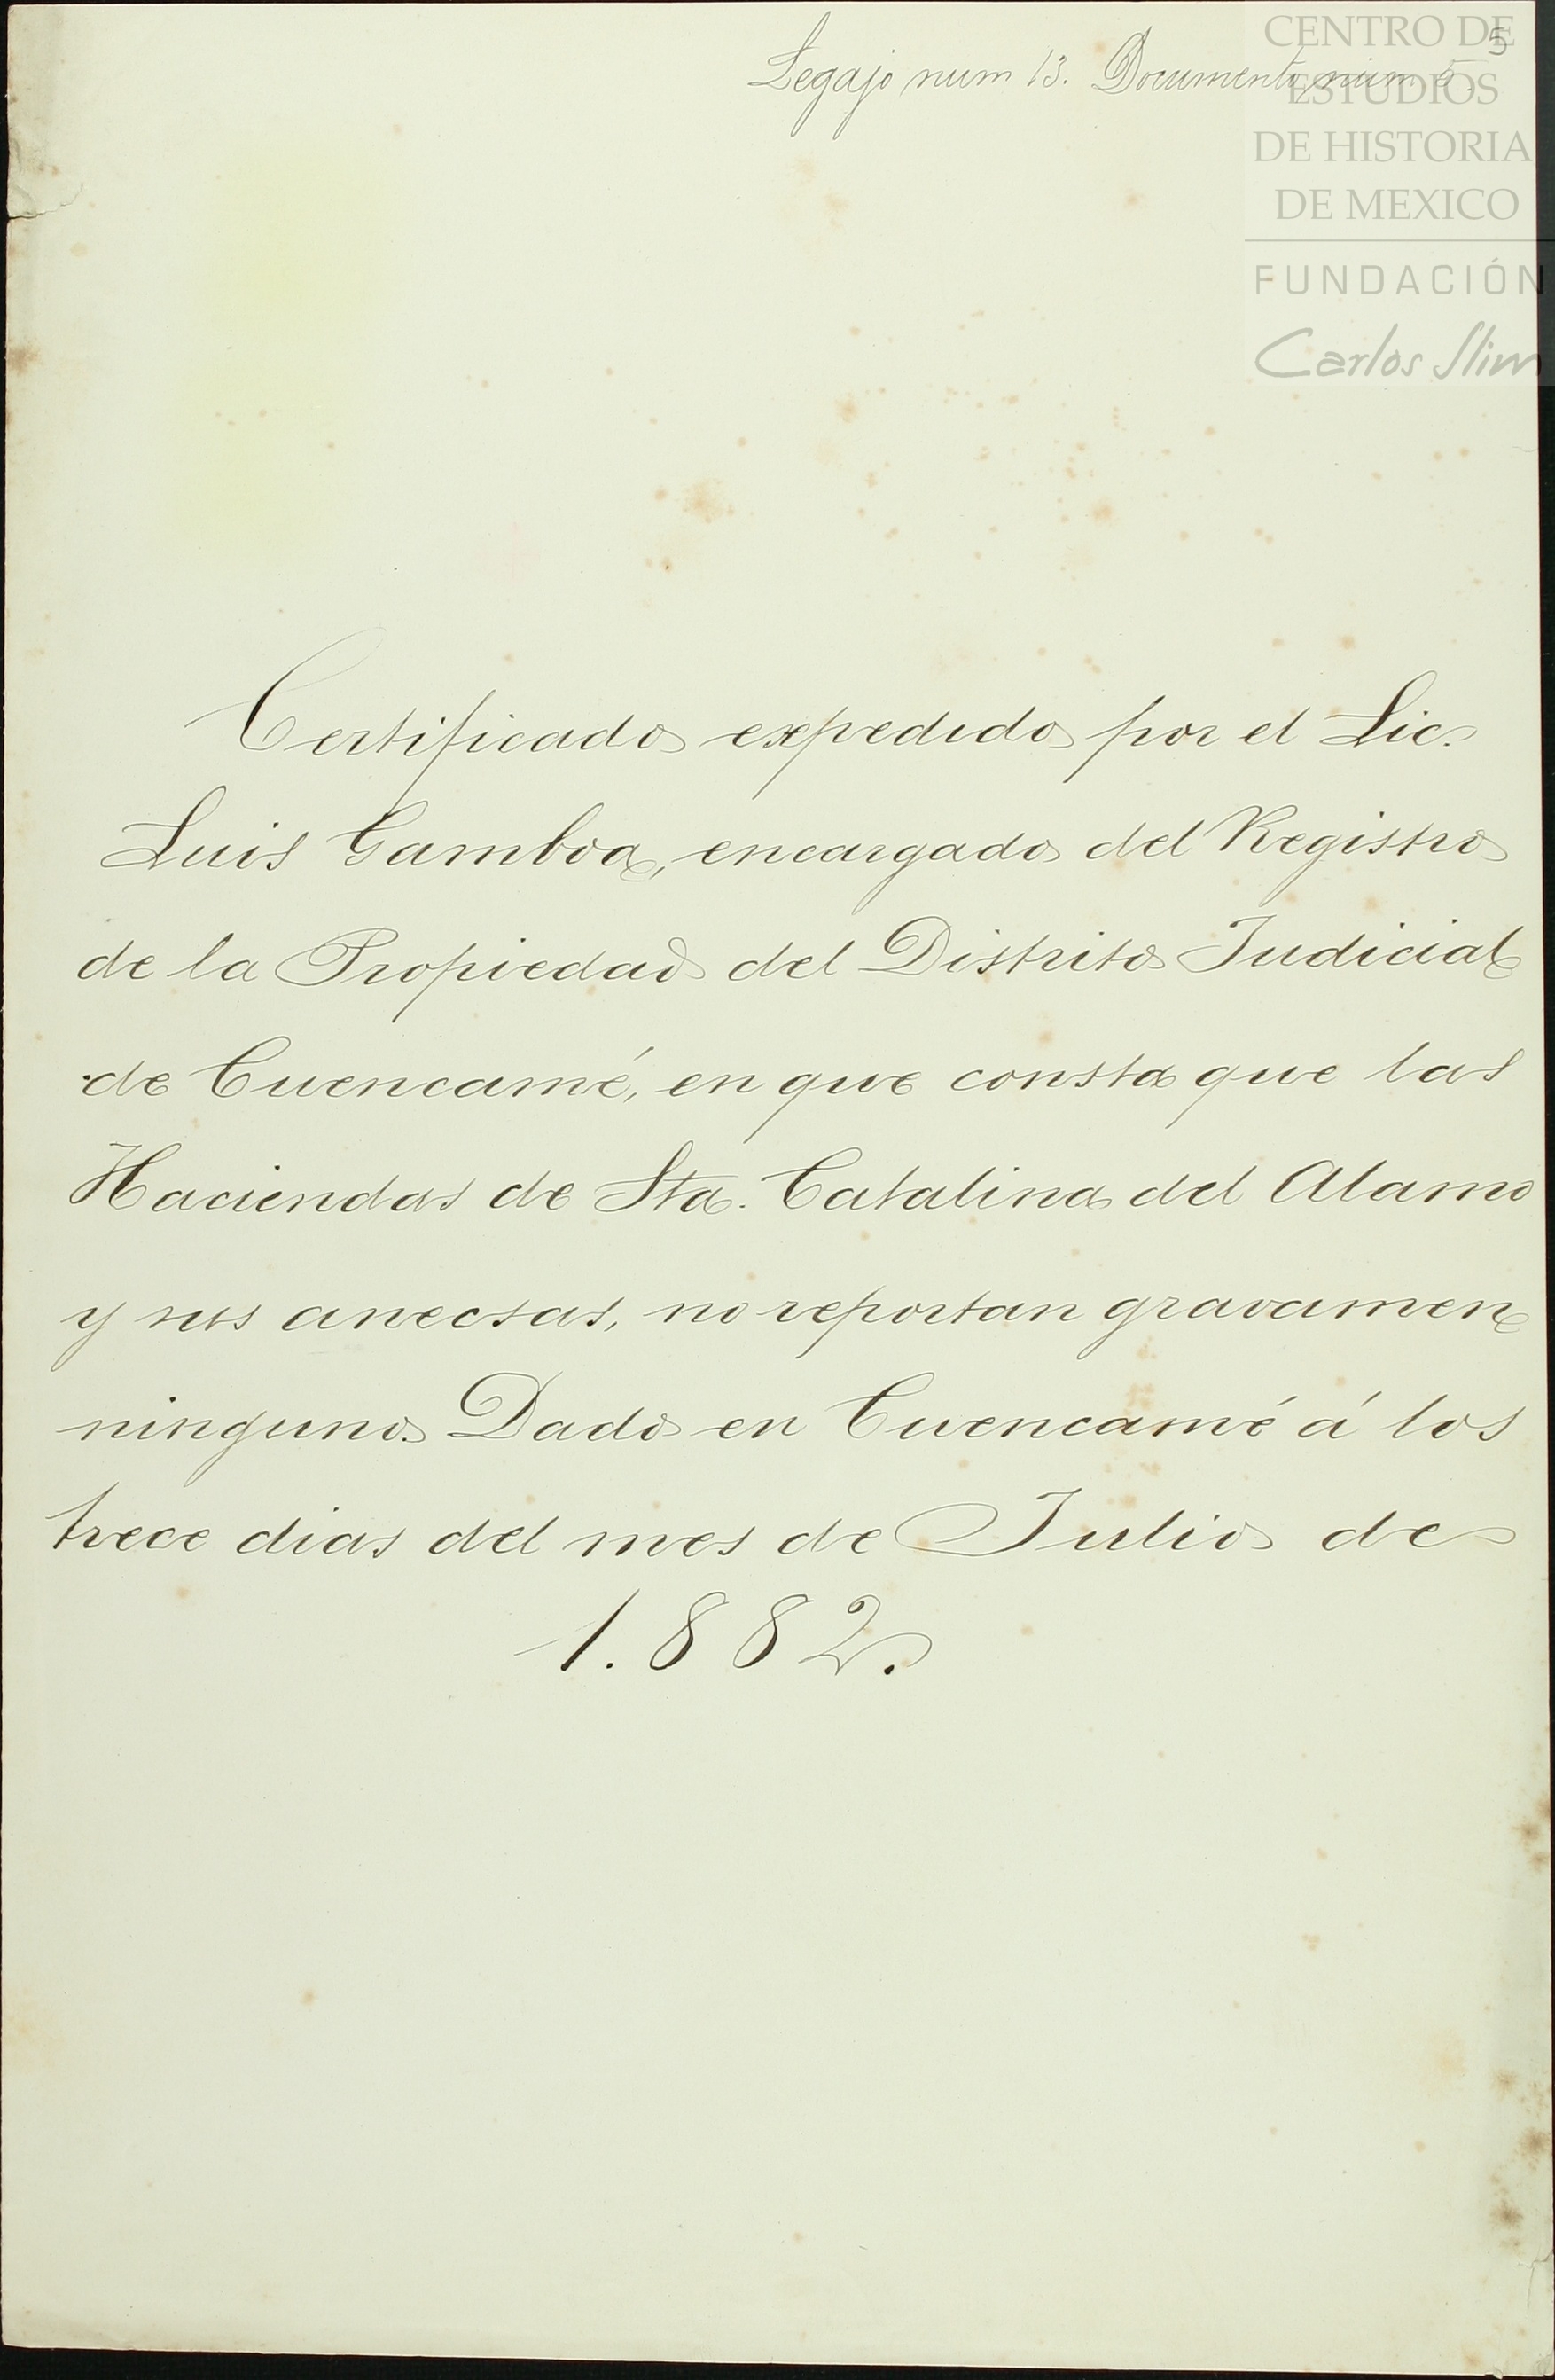 5
Legajo num 13. Documento num. 5.
CENTRO DE
ESTUDIOS
DE HISTORIA
DE MEXICO
FUNDACIÓN
Carlos Slim
Certificado expedido por el Lic.
Luis Gamboa, encargado del Registro
de la Propiedad del Distrito Judicial
de Cuencamé, en que consta que las
Haciendas de Sta. Catalina del Alamo
y sus anecsas, no reportan gravamen
ninguno. Dado en Cuencamé á los
trece dias del mes de Julio de
1.882.